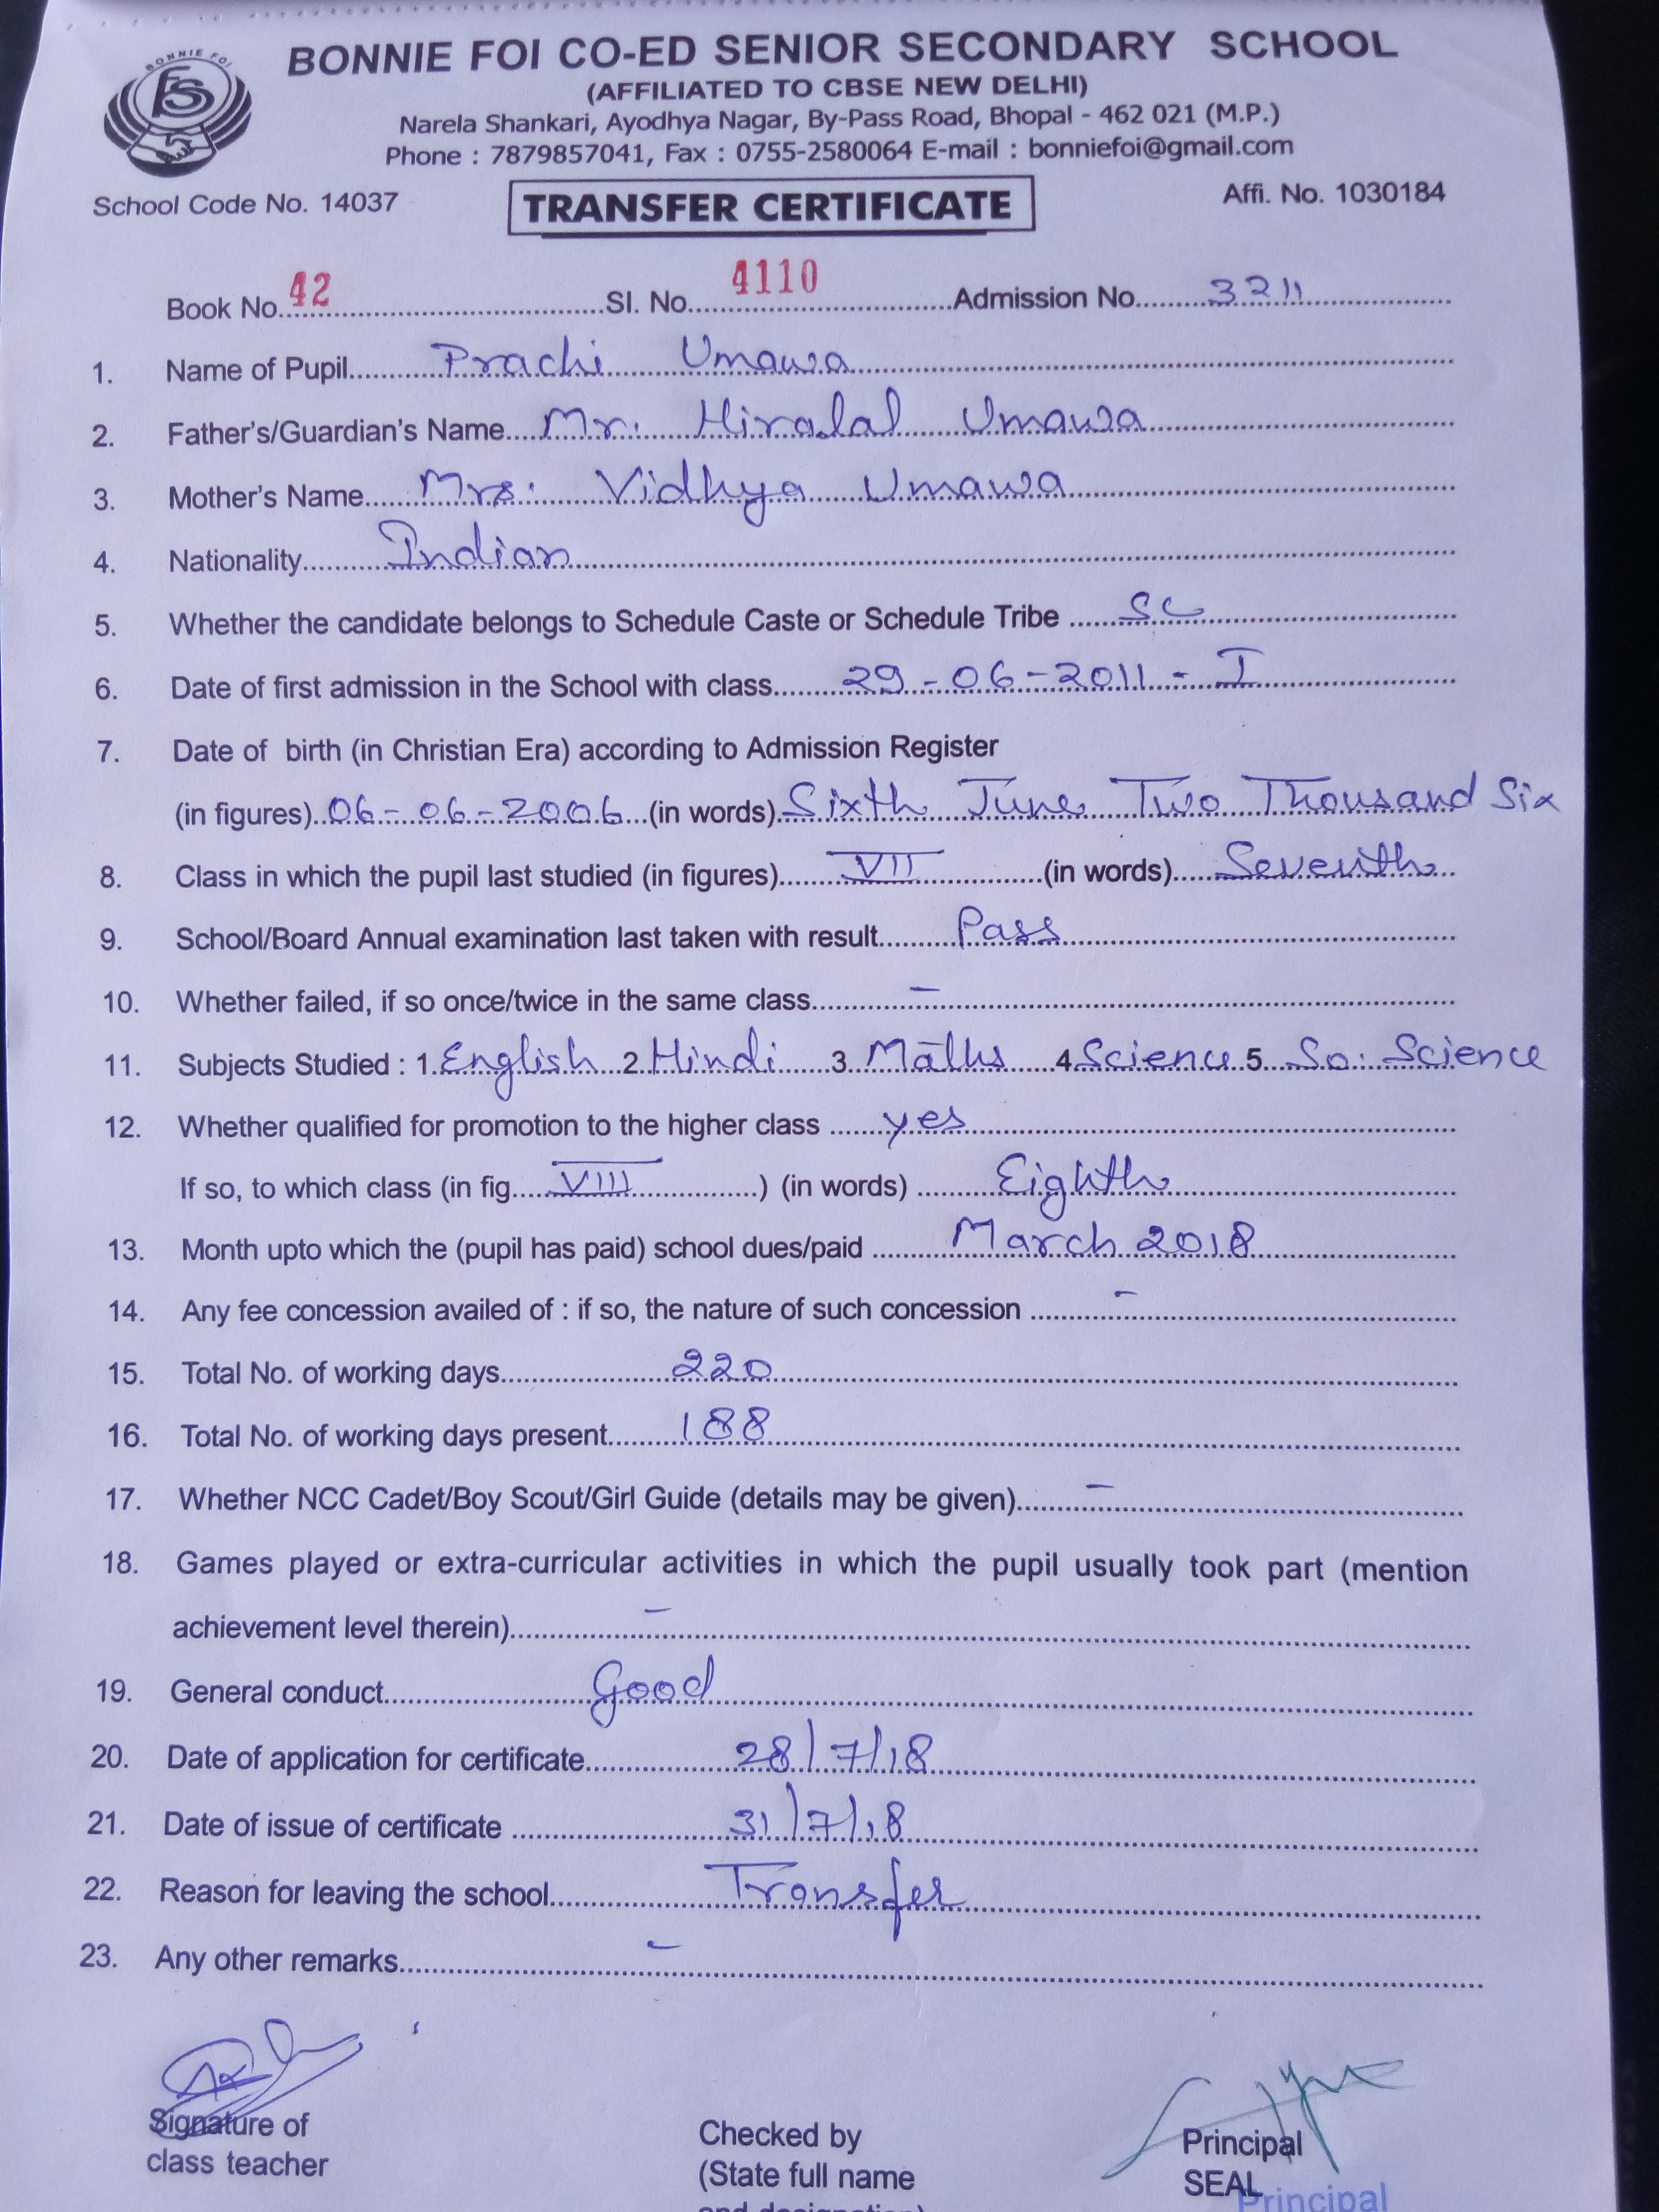 BONNIE FOI
FS
BONNIE FOI CO-ED SENIOR SECONDARY SCHOOL
(AFFILIATED TO CBSE NEW DELHI)
Narela Shankari, Ayodhya Nagar, By-Pass Road, Bhopal - 462 021 (M.P.)
Phone : 7879857041, Fax : 0755-2580064 E-mail : bonniefoi@gmail.com
School Code No. 14037 TRANSFER CERTIFICATE Affi. No. 1030184
Book No. 42 Sl. No. 4110 Admission No. 3211
1. Name of Pupil Prachi Umawa
2. Father's/Guardian's Name Mr. Hiralal Umawa
3. Mother's Name Mrs. Vidhya Umawa
4. Nationality Indian
5. Whether the candidate belongs to Schedule Caste or Schedule Tribe SC
6. Date of first admission in the School with class 29-06-2011 - I
7. Date of birth (in Christian Era) according to Admission Register
(in figures) 06-06-2006 (in words) Sixth June Two Thousand Six
8. Class in which the pupil last studied (in figures) VII (in words) Seventh
9. School/Board Annual examination last taken with result Pass
10. Whether failed, if so once/twice in the same class –
11. Subjects Studied : 1. English 2. Hindi 3. Maths 4. Science 5. So. Science
12. Whether qualified for promotion to the higher class yes
If so, to which class (in fig. VIII ) (in words) Eighth
13. Month upto which the (pupil has paid) school dues/paid March 2018
14. Any fee concession availed of : if so, the nature of such concession –
15. Total No. of working days 220
16. Total No. of working days present 188
17. Whether NCC Cadet/Boy Scout/Girl Guide (details may be given) –
18. Games played or extra-curricular activities in which the pupil usually took part (mention
achievement level therein) –
19. General conduct Good
20. Date of application for certificate 28/7/18
21. Date of issue of certificate 31/7/18
22. Reason for leaving the school Transfer
23. Any other remarks –
Signature of Checked by Principal
class teacher (State full name SEAL
and designation) Principal